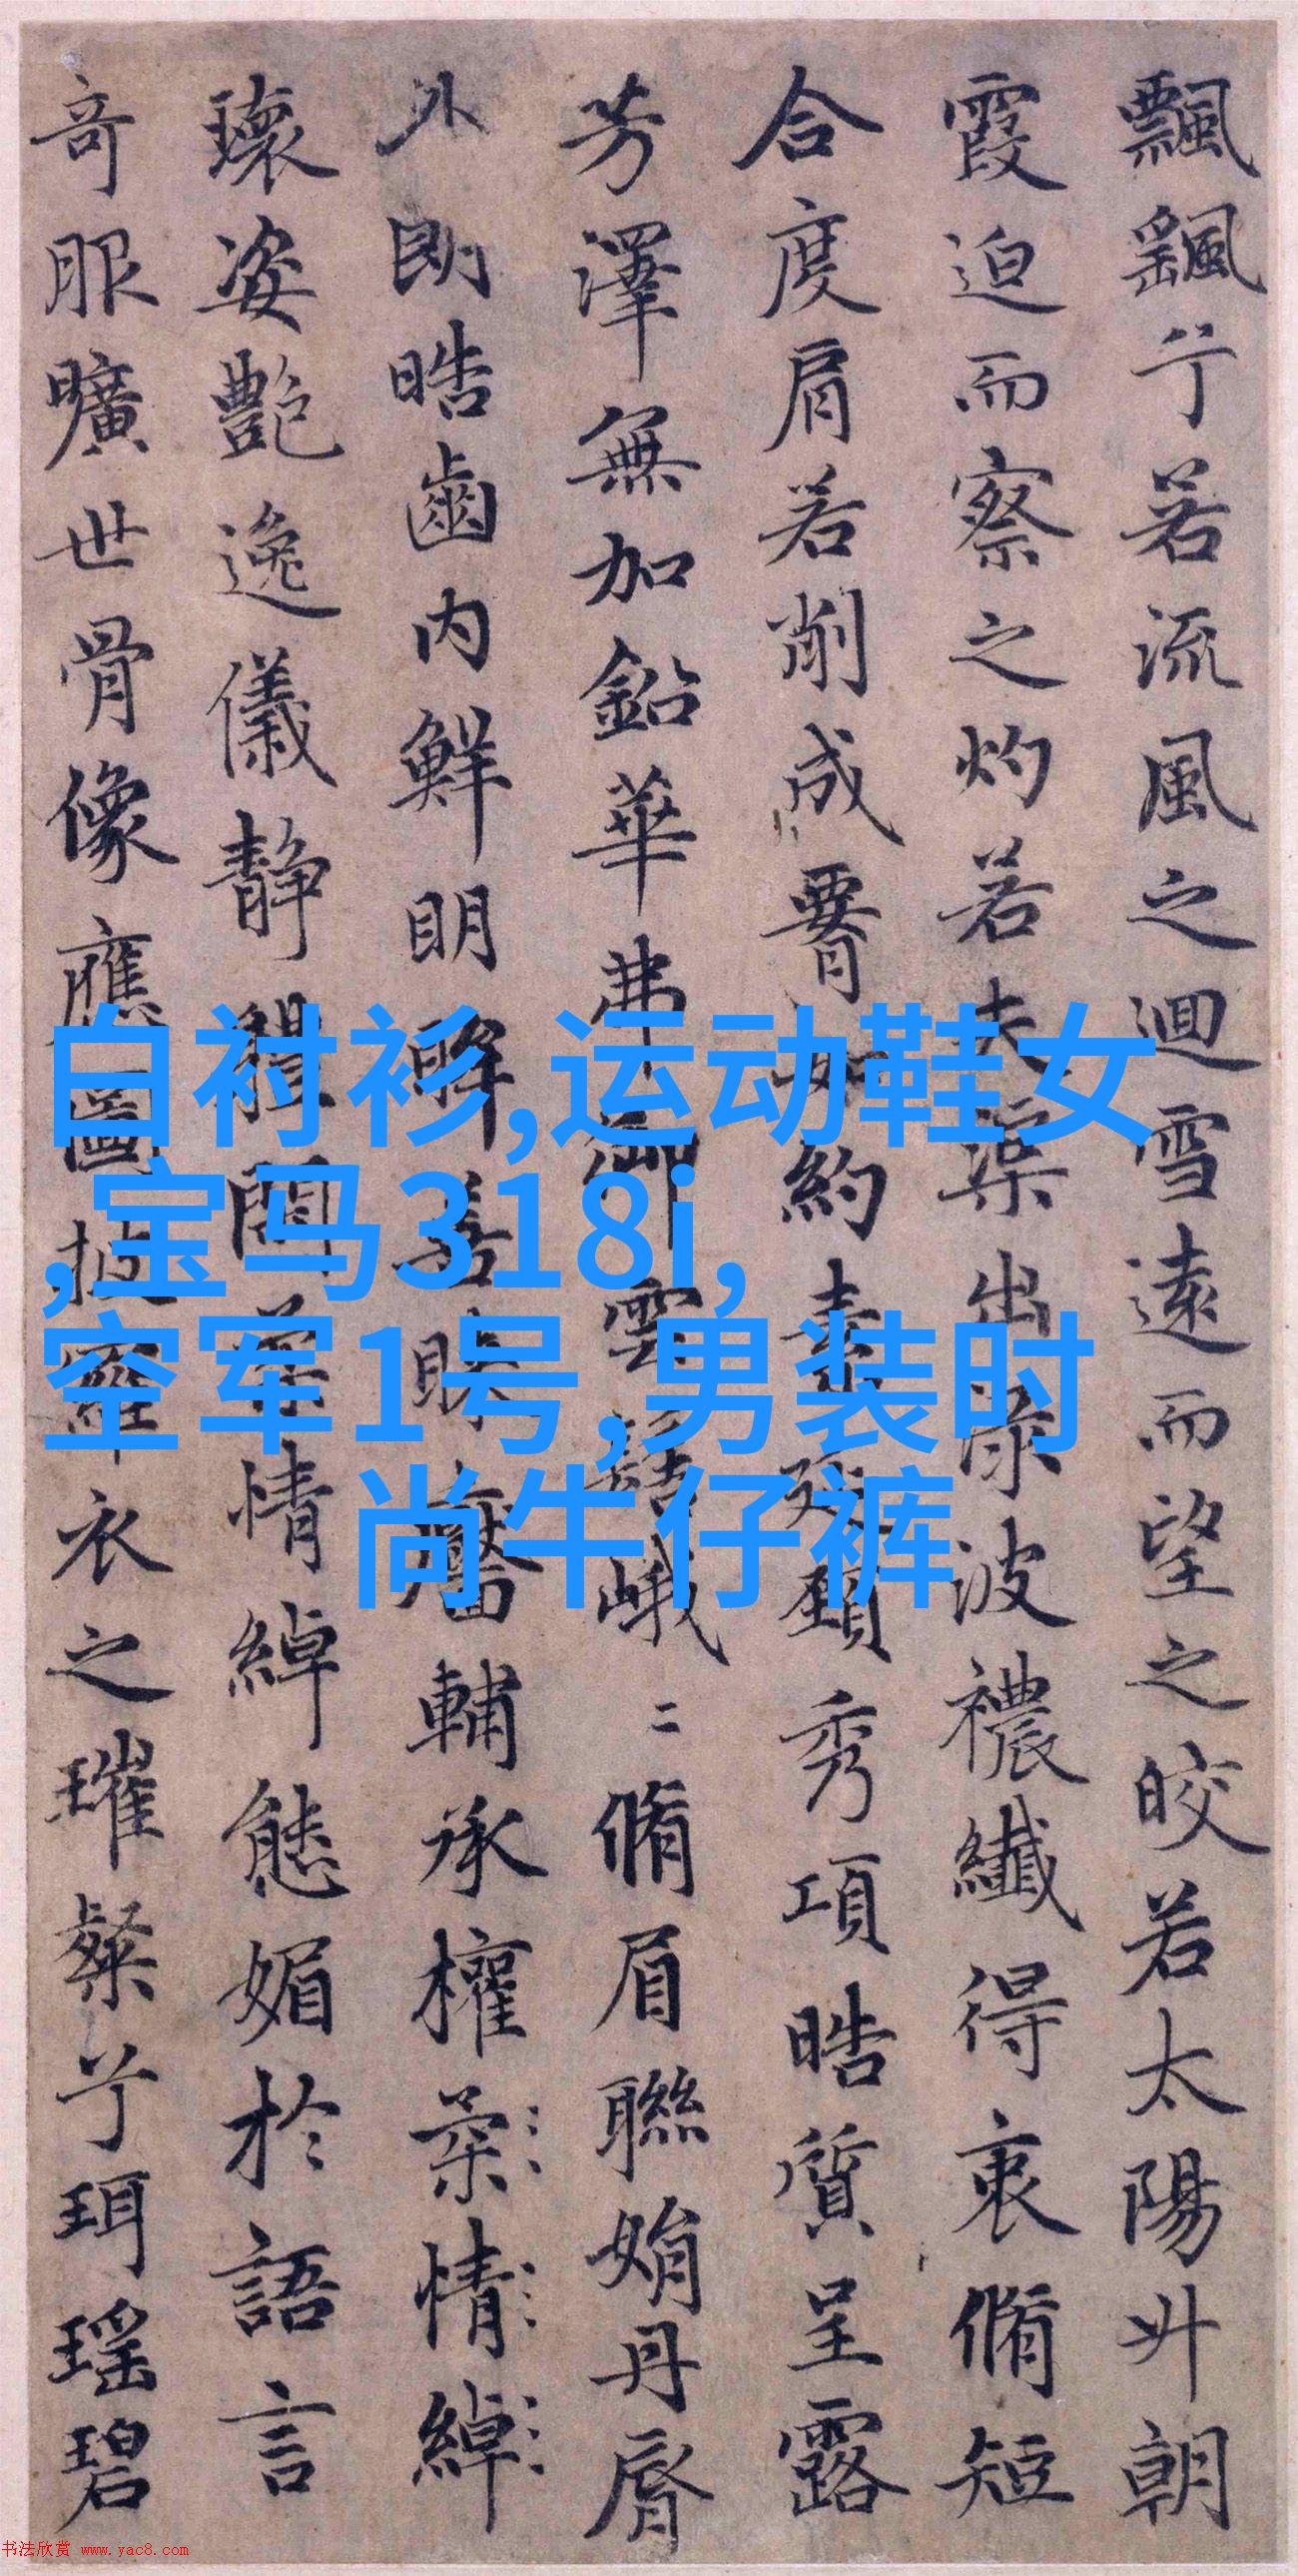 飄颻兮若流風之迴雪遠而望之皎若太陽升朝
霞迫而察之灼若夫渠出淥波襛纖得衷脩短
合度肩若削成𦝫如約素延頸秀項皓質呈露
芳澤無加鉛華弗御雲髻峨二脩眉聯娟丹脣
外朗皓齒内鮮明眸善睞靨輔承權柔情綽
瓌姿艶逸儀静體閑柔情綽態媚於語言
奇服曠世骨像應圖披羅衣之璀粲兮珥瑶碧
白衬衫,运动鞋女
,宝马318i,
空军1号,男装时
尚牛仔裤
书法欣赏 www.yac8.com